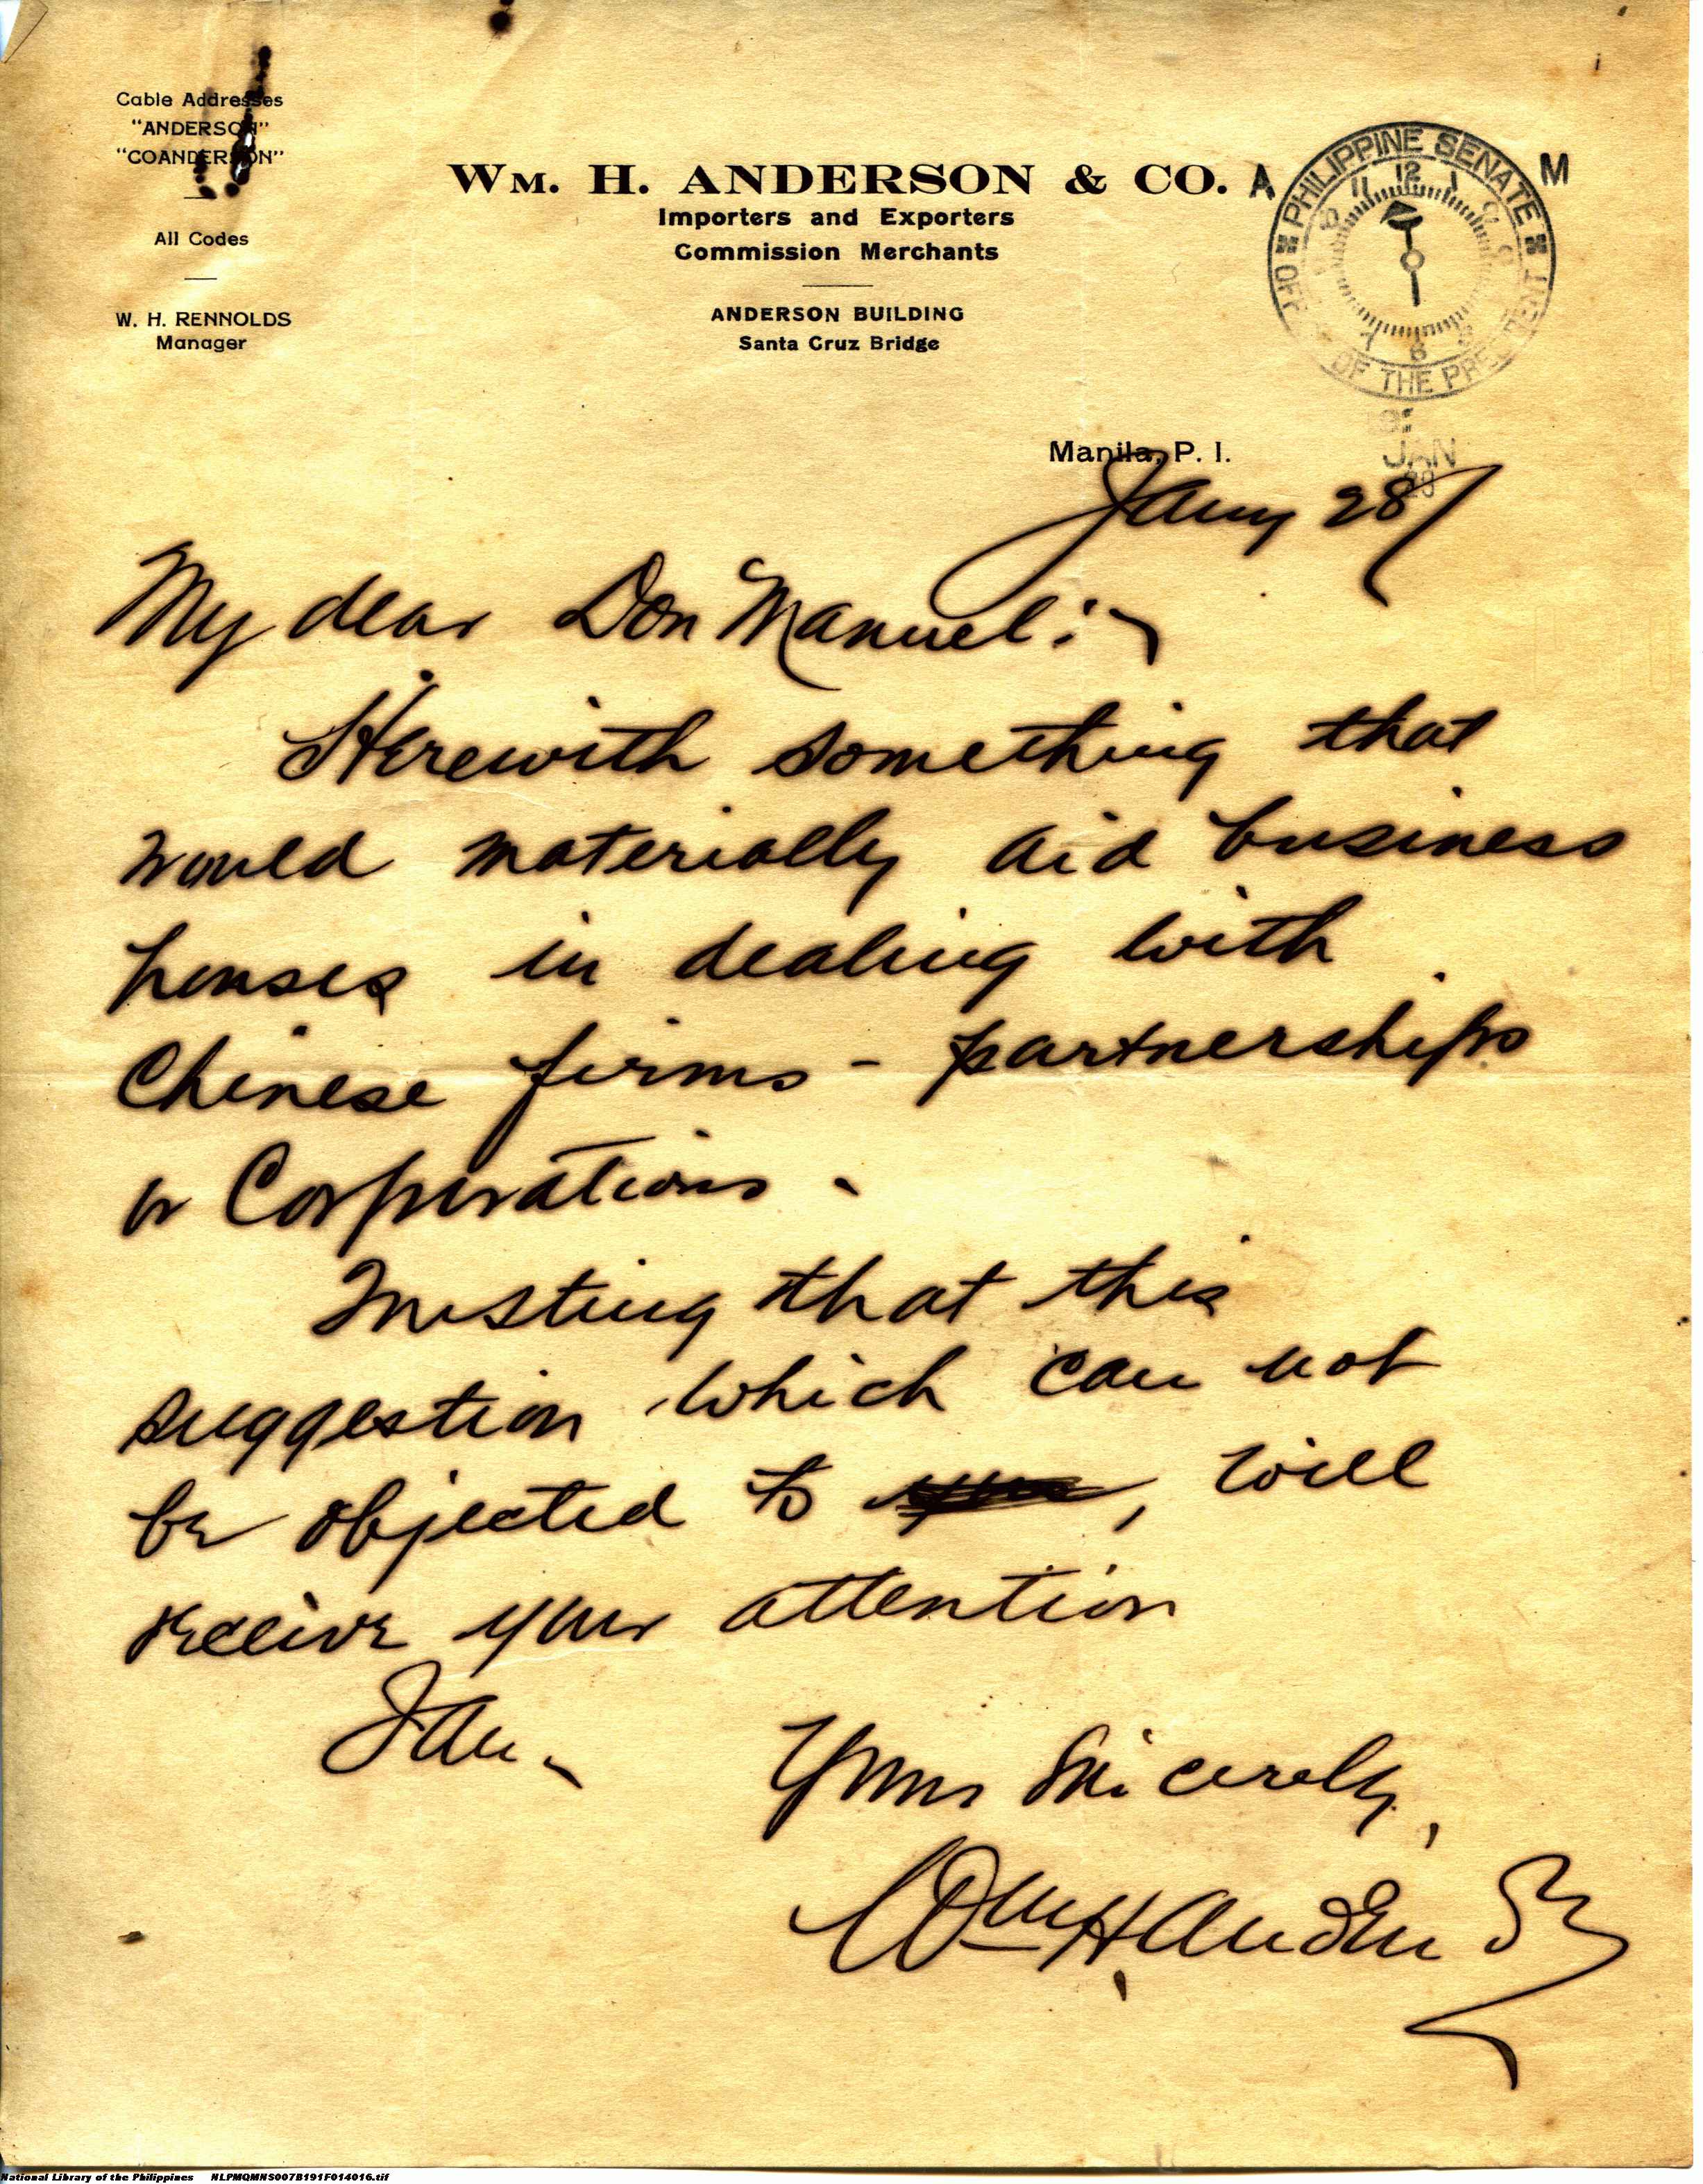 Cable Addresses
"ANDERSON"
"COANDERSON"
All Codes
W. H. RENNOLDS
Manager
WM. H. ANDERSON & CO.
Importers and Exporters
Commission Merchants
ANDERSON BUILDING
Santa Cruz Bridge
A M
PHILIPPINE SENATE
OF THE PRESIDENT
JAN
Manila, P. I.
Jany 28/
My dear Don Manuel:
Herewith something that
would materially aid business
houses in dealing with
Chinese firms - partnerships
or Corporations.
Trusting that this
suggestion which can not
be objected to , will
receive your attention
I am -
Yours Sincerely,
Wm H Anderson
National Library of the Philippines NLPMQMNS007B191F014016.tif